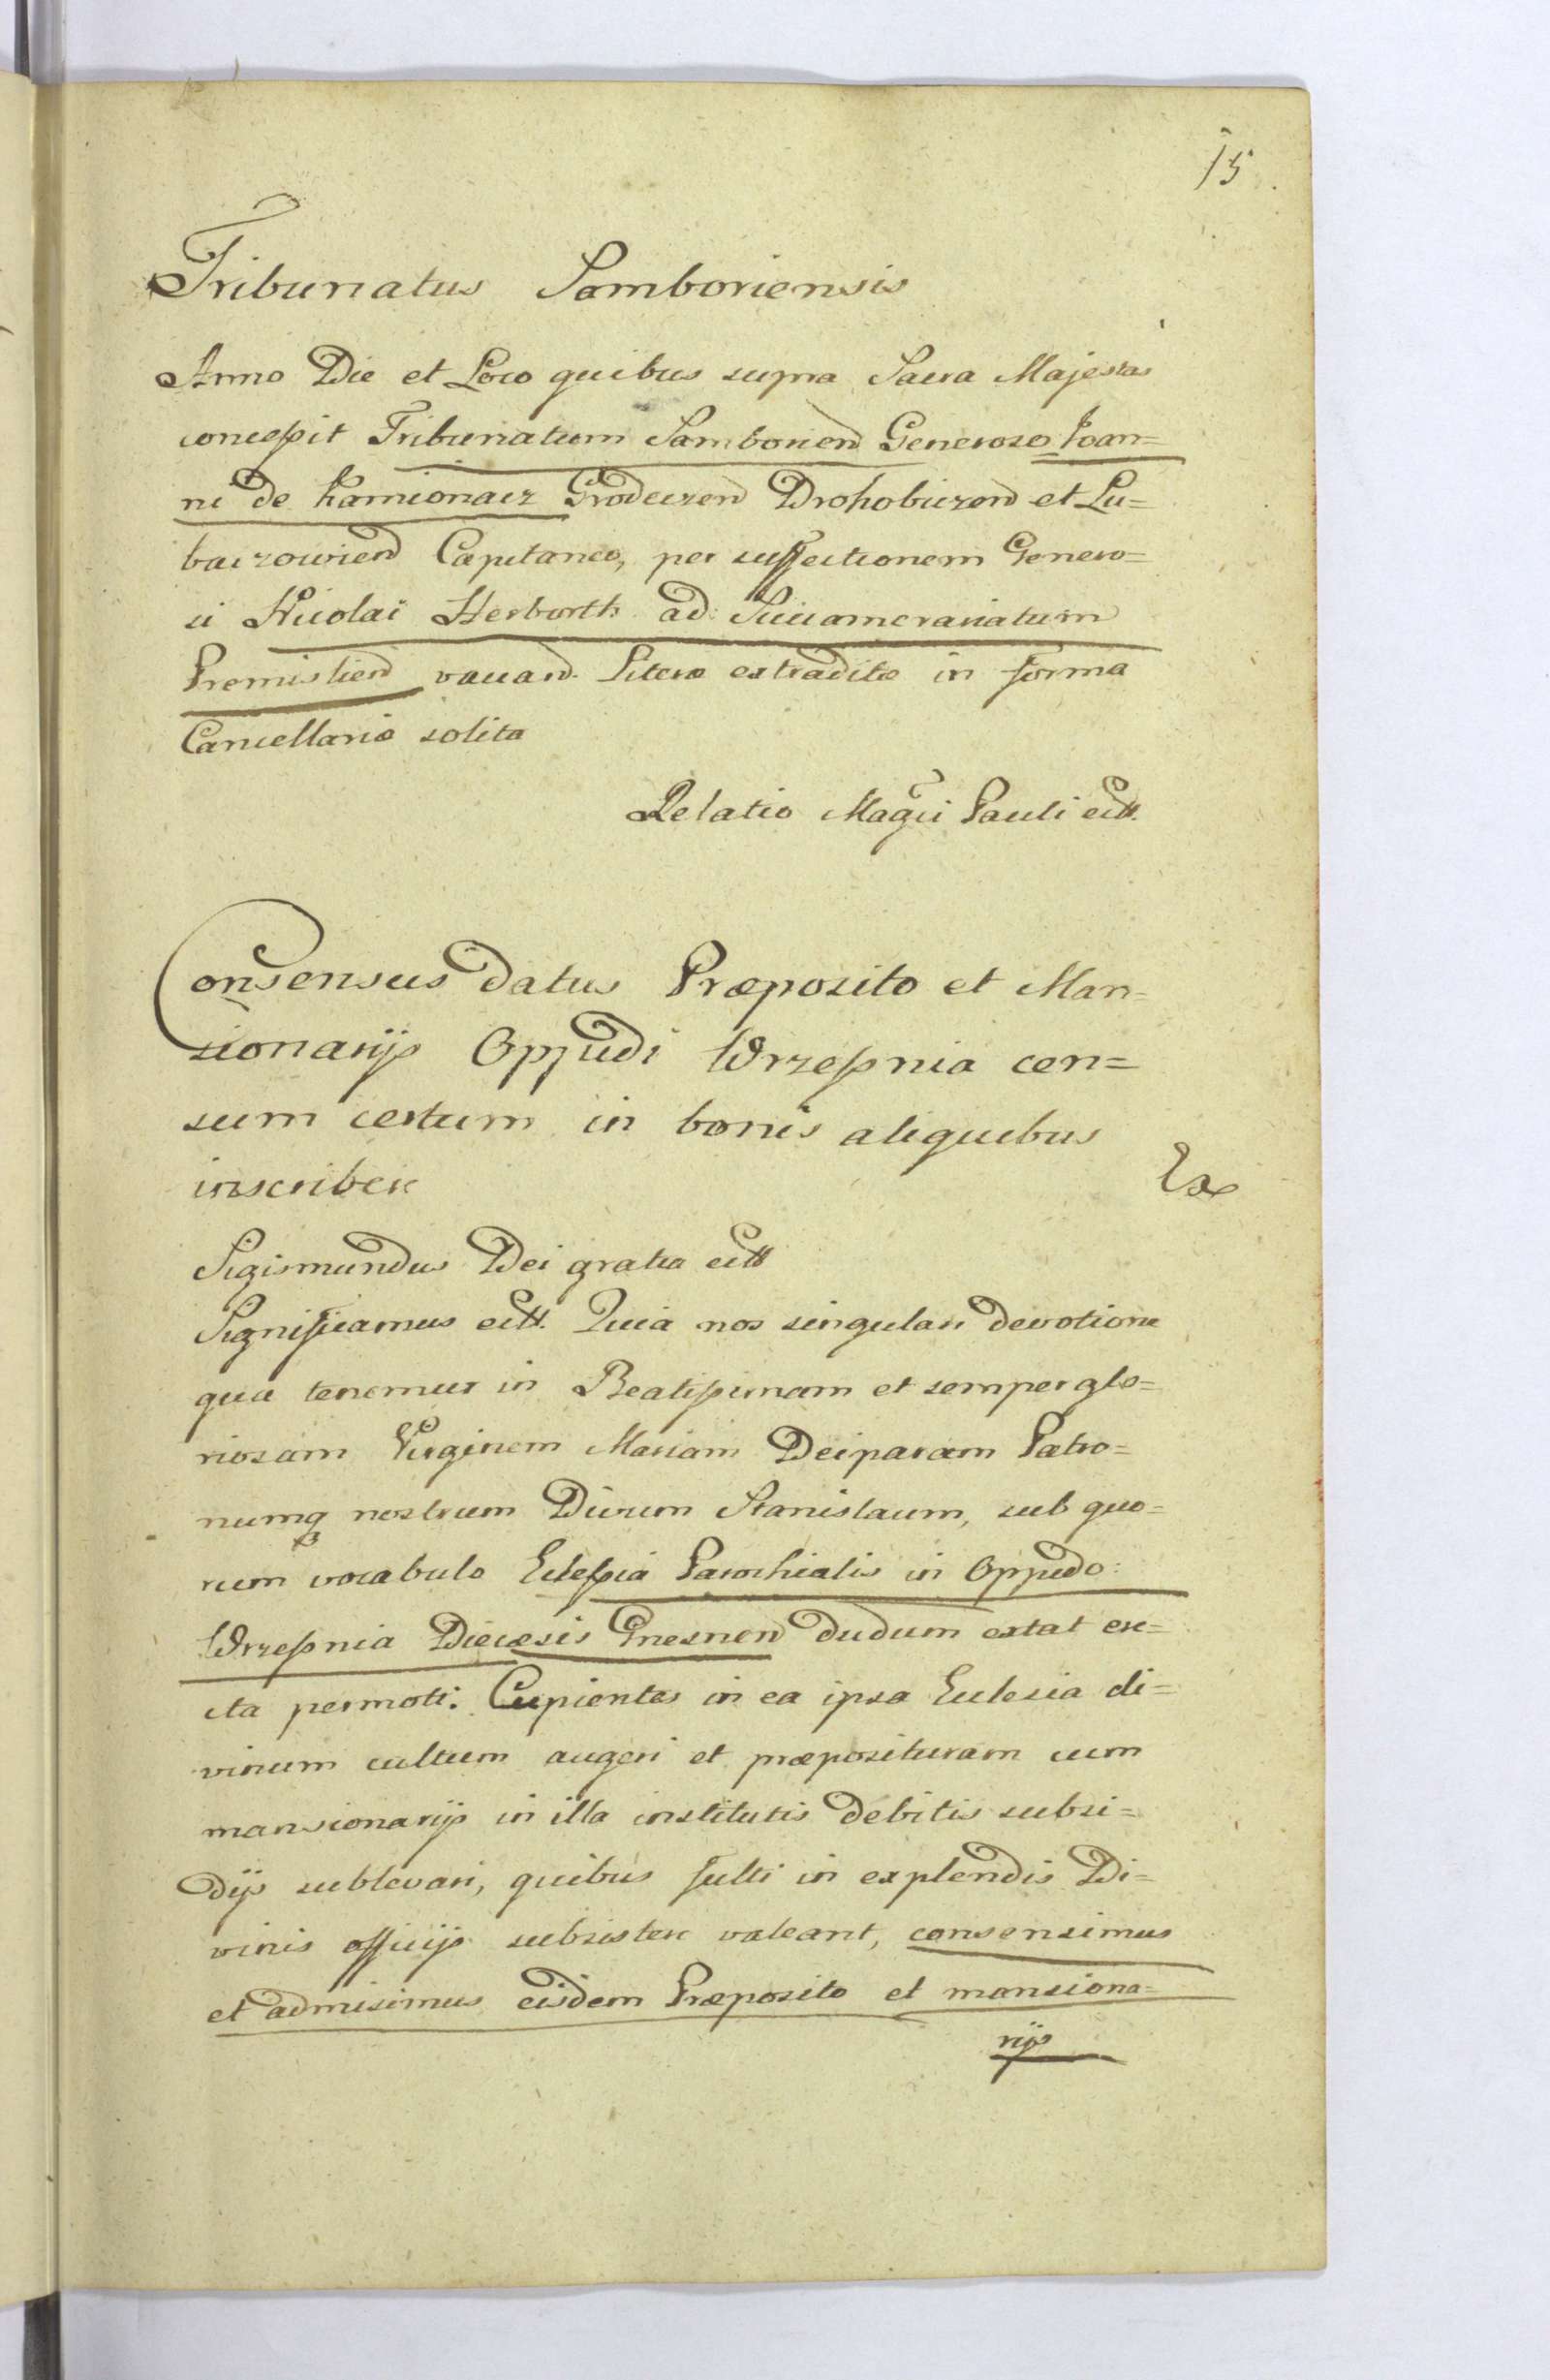 15.
Tribunatus Samboriensis
Anno Die et Loco quibus supra Sacra Majestas
concessit Tribunatum Samborien Generoso Joan=
ni de Kamionacz Grodeczen Drohobiczen et Lu=
baczowien Capitaneo, per suffectionem Genero=
si Nicolai Herborth ad Succamerariatum
Premislien vacan. Literæ extraditæ in forma
Cancellariæ solita
Relatio Magci Pauli ectt.
Consensus datus Præposito et Man=
sionarijs Oppidi Wrzessnia cen=
sum certum in bonis aliquibus
inscribere
Ex
Sigismundus Dei gratia ectt
Significamus ectt. Quia nos singulari devotione
qua tenemur in Beatissimam et semper glo=
riosam Virginem Mariam Deiparam Patro=
numq nostrum Divum Stanislaum, sub quo=
rum vocabulo Eclessia Parochialis in Oppido
Wrzessnia Diecæsis Gnesnen dudum extat ere=
cta permoti. Cupientes in ea ipsa Eclesia di=
vinum cultum augeri et præposituram cum
mansionarijs in illa institutis debitis subsi=
dijs sublevari, quibus fulti in explendis Di=
vinis officijs subsistere valeant, consensimus
et admisimus eisdem Præposito et mansiona=
rijs